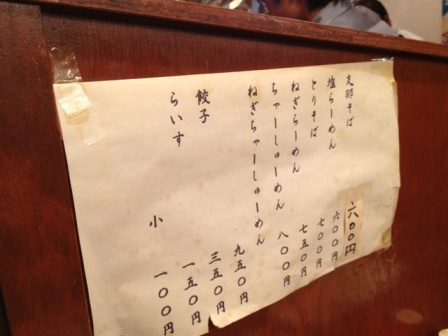 支那そば 六〇〇円
塩らーめん 六〇〇円
とりそば 七〇〇円
ねぎらーめん 七五〇円
ちゃーしゅーめん 八〇〇円
ねぎちゃーしゅーめん 九五〇円
餃子 三五〇円
らいす 一五〇円
小 一〇〇円